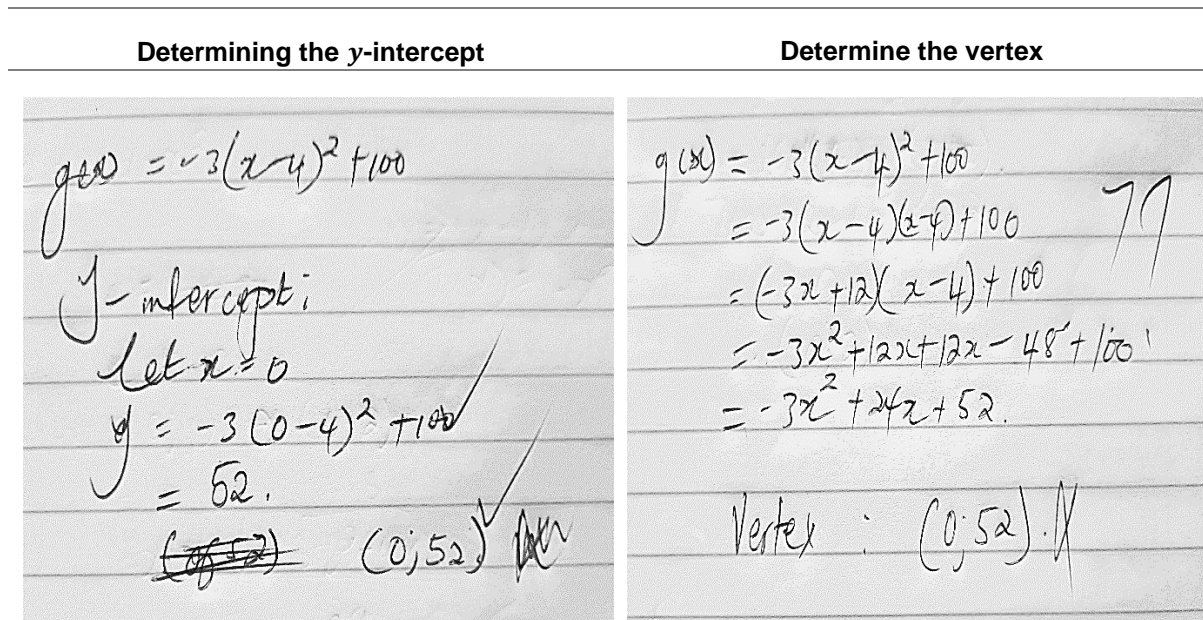 Determining the y-intercept
g(x) = -3(x-4)² + 100
y-intercept:
let x = 0
y = -3(0-4)² + 100
= 52.
(0;52)
Determine the vertex
g(x) = -3(x-4)² + 100
= -3(x-4)(x-4) + 100
= (-3x+12)(x-4) + 100
= -3x² + 12x + 12x - 48 + 100
= -3x² + 24x + 52.
Vertex : (0;52).